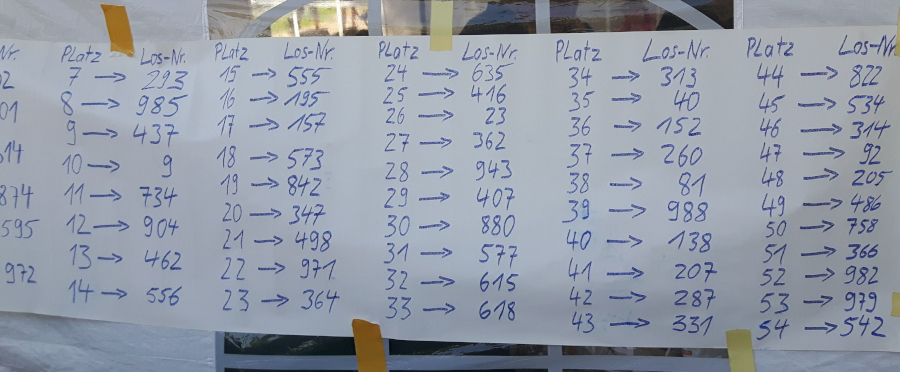 Nr.
2
01
614
874
595
972
Platz Los-Nr.
7 → 293
8 → 985
9 → 437
10 → 9
11 → 734
12 → 904
13 → 462
14 → 556
Platz Los-Nr.
15 → 555
16 → 195
17 → 157
18 → 573
19 → 842
20 → 347
21 → 498
22 → 971
23 → 364
Platz Los-Nr.
24 → 635
25 → 416
26 → 23
27 → 362
28 → 943
29 → 407
30 → 880
31 → 577
32 → 615
33 → 618
Platz Los-Nr.
34 → 313
35 → 40
36 → 152
37 → 260
38 → 81
39 → 988
40 → 138
41 → 207
42 → 287
43 → 331
Platz Los-Nr.
44 → 822
45 → 534
46 → 314
47 → 92
48 → 205
49 → 486
50 → 758
51 → 366
52 → 982
53 → 979
54 → 542